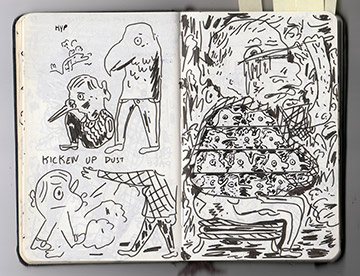 HYP
KICKEN UP DUST